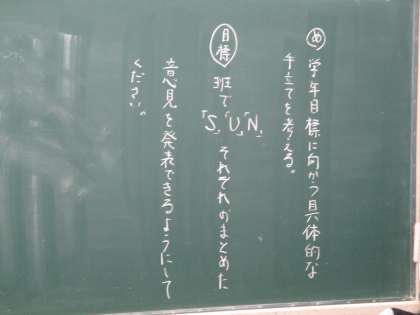 め 学年目標に向かう具体的な
手立てを考える。
目標 班で「S」「U」「N」それぞれのまとめた
意見を発表できるようにして
ください。